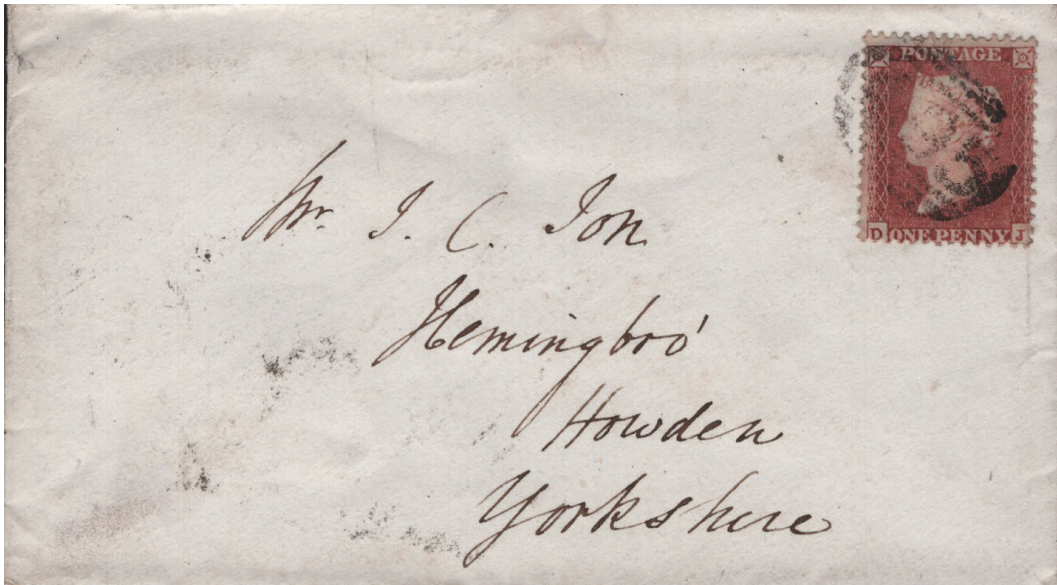 POSTAGE
D ONE PENNY J
Mr. J. C. Ion
Hemingbro'
Howden
Yorkshire